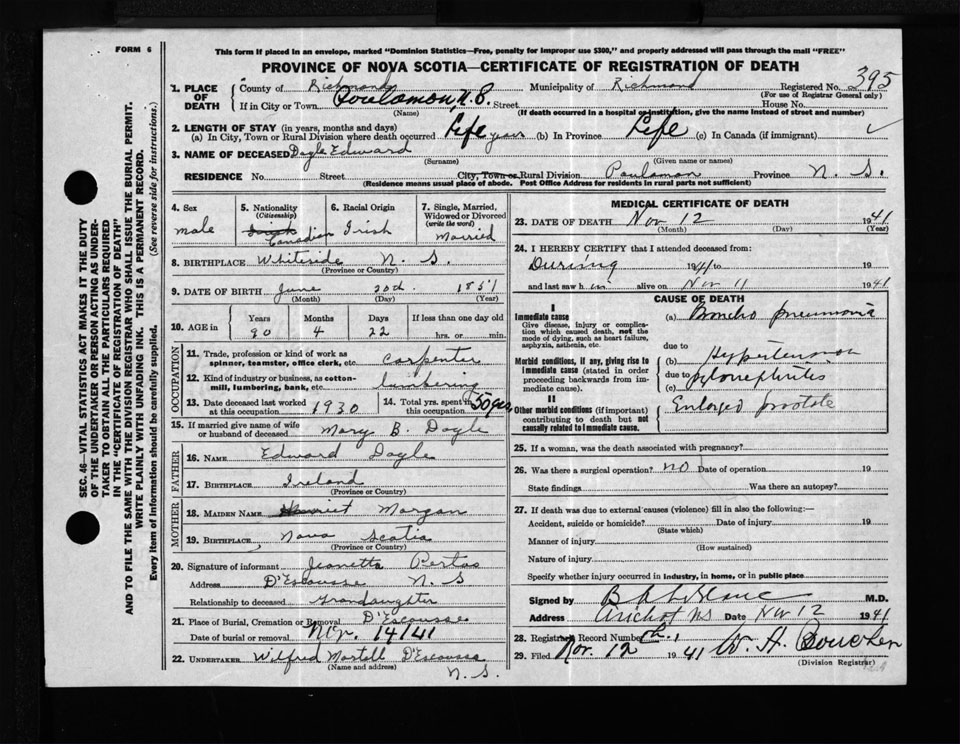 FORM 6
This form if placed in an envelope, marked "Dominion Statistics—Free, penalty for improper use $300," and properly addressed will pass through the mail "FREE"
PROVINCE OF NOVA SCOTIA—CERTIFICATE OF REGISTRATION OF DEATH
1. PLACE OF DEATH County of Richmond Municipality of Richmond Registered No. 395
(For use of Registrar General only)
If in City or Town Poulamon, N.S. Street House No.
(Name) (If death occurred in a hospital or institution, give the name instead of street and number)
2. LENGTH OF STAY (in years, months and days)
(a) In City, Town or Rural Division where death occurred Life year (b) In Province Life (c) In Canada (if immigrant)
3. NAME OF DECEASED Doyle Edward
(Surname) (Given name or names)
RESIDENCE No. Street City, Town or Rural Division Poulamon Province N. S.
(Residence means usual place of abode. Post Office Address for residents in rural parts not sufficient)
4. Sex 5. Nationality (Citizenship) 6. Racial Origin 7. Single, Married, Widowed or Divorced (write the word)
male Irish Canadian Irish Married
8. BIRTHPLACE Whiteside N. S.
(Province or Country)
9. DATE OF BIRTH June 20th. 1851
(Month) (Day) (Year)
10. AGE in Years Months Days If less than one day old
90 4 22 hrs. or min.
OCCUPATION
11. Trade, profession or kind of work as spinner, teamster, office clerk, etc. carpenter
12. Kind of industry or business, as cotton-mill, lumbering, bank, etc. lumbering
13. Date deceased last worked at this occupation 1930 14. Total yrs. spent in this occupation 50 years
15. If married give name of wife or husband of deceased Mary B. Doyle
FATHER
16. NAME Edward Doyle
17. BIRTHPLACE Ireland
(Province or Country)
MOTHER
18. MAIDEN NAME Harriet Morgan
19. BIRTHPLACE Nova Scotia
(Province or Country)
20. Signature of informant Jeanetta Pertus
Address D'Escousse N. S
Relationship to deceased Grandaughter
21. Place of Burial, Cremation or Removal D'Escousse
Date of burial or removal Nov. 14/41
22. UNDERTAKER Wilfred Martell D'Escousse
(Name and address) N. S.
MEDICAL CERTIFICATE OF DEATH
23. DATE OF DEATH Nov 12 1941
(Month) (Day) (Year)
24. I HEREBY CERTIFY that I attended deceased from:
During 1941 to 19
and last saw him alive on Nov 11 1941
CAUSE OF DEATH
I
Immediate cause (a) Broncho pneumonia
Give disease, injury or complication which caused death, not the mode of dying, such as heart failure, asphyxia, asthenia, etc.
due to
Morbid conditions, if any, giving rise to immediate cause (stated in order proceeding backwards from immediate cause).
(b) Hypertension
due to
(c) pylonephritis
II
Other morbid conditions (if important) contributing to death but not causally related to immediate cause.
Enlarged prostate
25. If a woman, was the death associated with pregnancy?
26. Was there a surgical operation? no Date of operation 19
State findings Was there an autopsy?
27. If death was due to external causes (violence) fill in also the following:—
Accident, suicide or homicide? Date of injury 19
(State which)
Manner of injury
(How sustained)
Nature of injury
Specify whether injury occurred in industry, in home, or in public place
Signed by B A LeBlanc M.D.
Address Arichat NS Date Nov 12 1941
28. Registrar's Record Number
29. Filed Nov. 12th 1941 W. A. Boucher
(Division Registrar)
SEC. 46—VITAL STATISTICS ACT MAKES IT THE DUTY
OF THE UNDERTAKER OR PERSON ACTING AS UNDER-
TAKER TO OBTAIN ALL THE PARTICULARS REQUIRED
IN THE "CERTIFICATE OF REGISTRATION OF DEATH"
AND TO FILE THE SAME WITH THE DIVISION REGISTRAR WHO SHALL ISSUE THE BURIAL PERMIT.
WRITE PLAINLY WITH UNFADING INK. THIS IS A PERMANENT RECORD.
Every item of information should be carefully supplied. (See reverse side for instructions.)